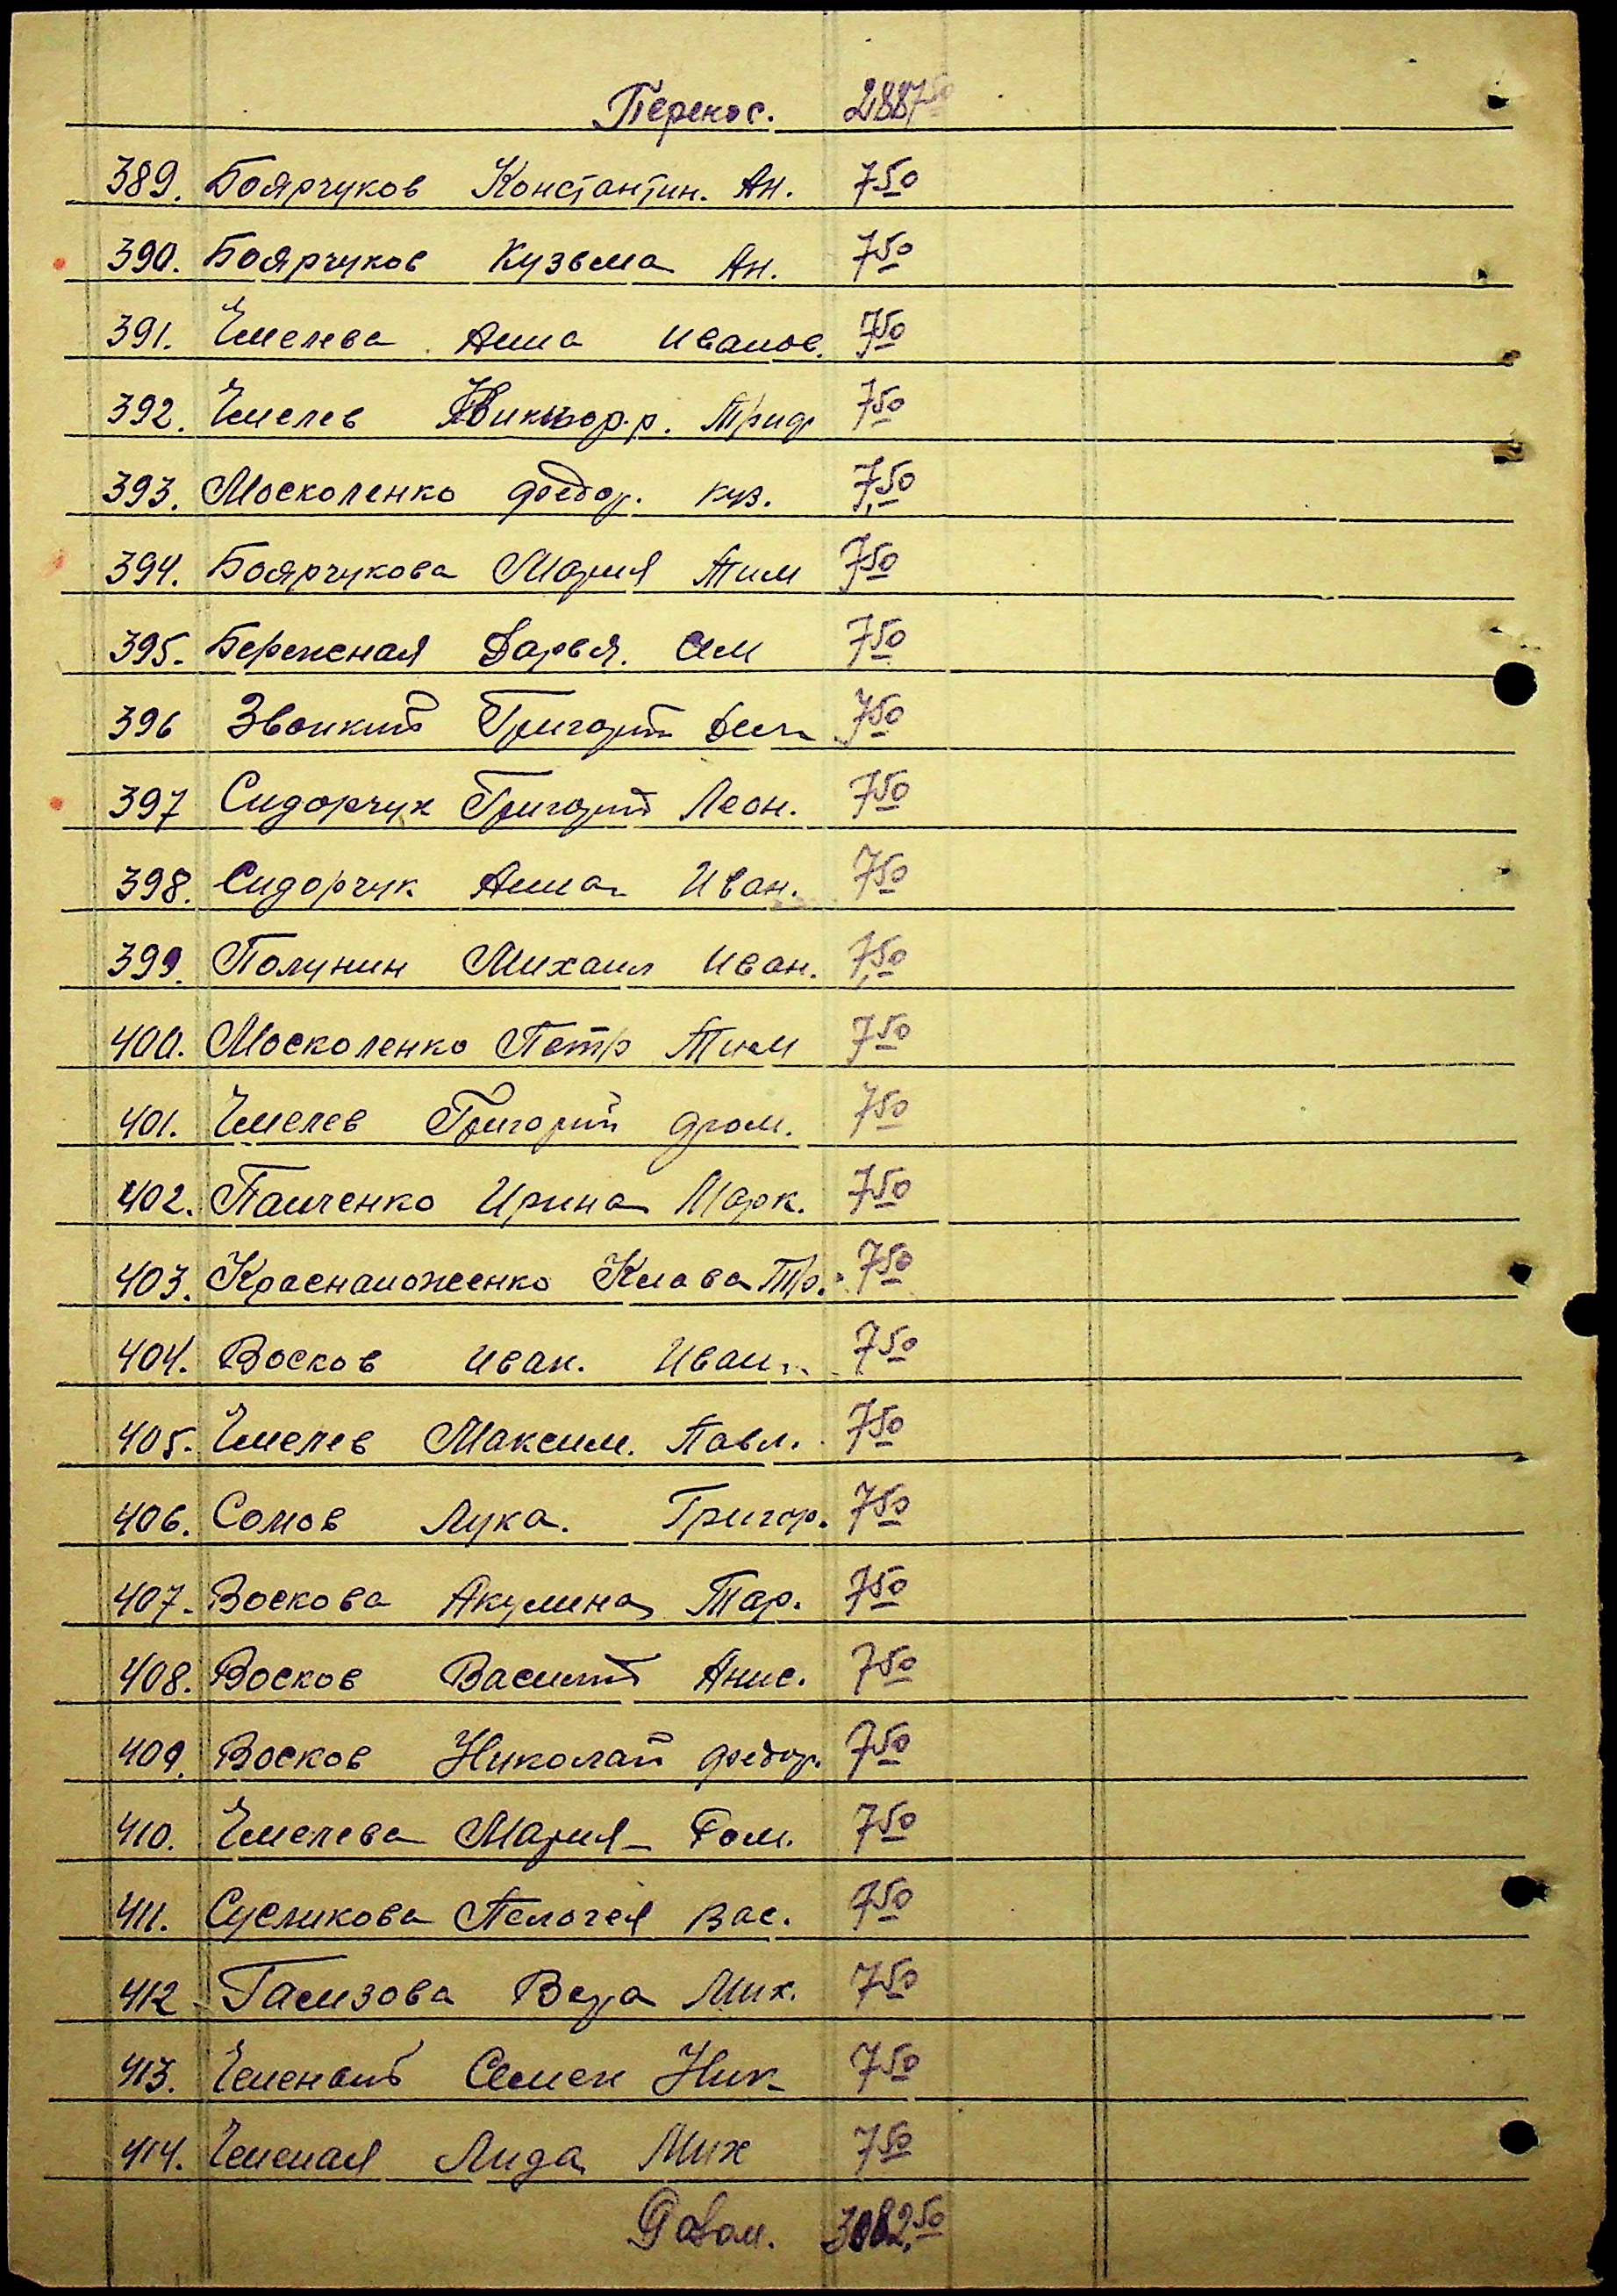 Перенос. 2887,50
389. Боярчуков Константин. Ан. 7 50
390. Боярчуков Кузьма Ан. 7 50
391. Чмелева Анна Иванов. 7 50
392. Чмелев Виктор.р. Триф 7 50
393. Москоленко Федор. Куз. 7,50
394. Боярчукова Мария Тим 7 50
395. Бережная Дарья. Ем 7 50
396 Звонкий Григорий Дем 7 50
397 Сидорчук Григорий Леон. 7 50
398. Сидорчук Анна Иван. 7 50
399. Полунин Михаил Иван. 7,50
400. Москоленко Петр Тим 7 50
401. Чмелев Григорий Фом. 7 50
402. Панченко Ирина Марк. 7 50
403. Клава Тр. 7 50
404. Восков Иван. Иван. 7 50
405. Чмелев Максим. Павл. 7 50
406. Сомов Лука. Григор. 7 50
407. Воскова Акулина Тар. 7 50
408. Восков Василий Анис. 7 50
409. Восков Николай Федор. 7 50
410. Чмелева Мария Фом. 7 50
411. Сусликова Пелогея Вас. 7 50
412 Вера Мих. 7 50
413. Семен Ник 7 50
414. Лида Мих 7 50
3082,50